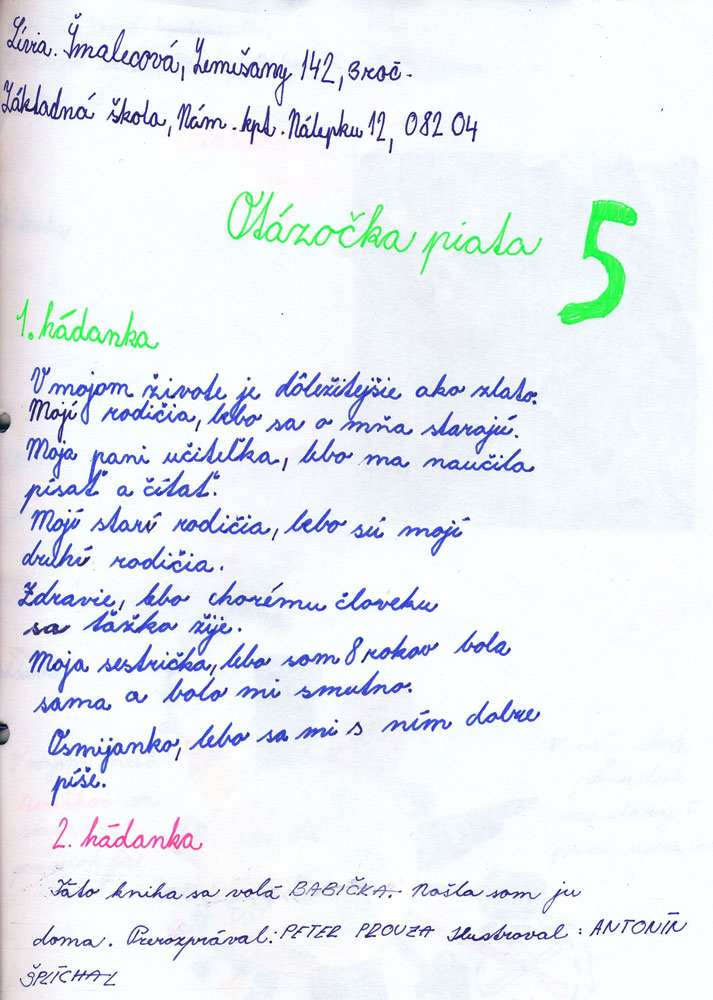 Lívia. Šmalecová, Lemešany 142, 3 roč.
Základná škola, Nám. kpt. Nálepku 12, 082 04
Otázočka piata 5
1. hádanka
V mojom živote je dôležitejšie ako zlato.
Mojí rodičia, lebo sa o mňa starajú.
Moja pani učiteľka, lebo ma naučila
písať a čítať.
Mojí starí rodičia, lebo sú mojí
druhí rodičia.
Zdravie, lebo chorému človeku
sa ťažko žije.
Moja sestrička, lebo som 8 rokov bola
sama a bolo mi smutno.
Osmijanko, lebo sa mi s ním dobre
píše.
2. hádanka
Táto kniha sa volá BABIČKA. Našla som ju
doma. Prerozprával: PETER PROUZA Ilustroval : ANTONÍN
ŠPLÍCHAL